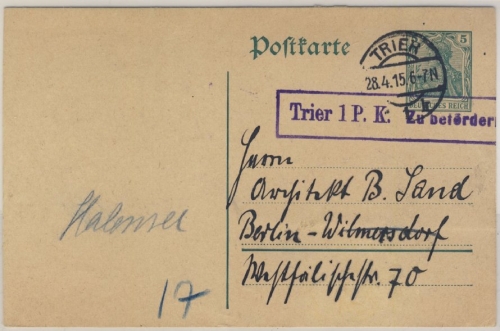 Postkarte
5
DEUTSCHES REICH
TRIER
28.4.15.6-7N
Trier 1 P. K. Zu beförder
Herrn
Architekt B. Sand
Berlin-Wilmersdorf
Westfälischestr. 70
Halensee
17